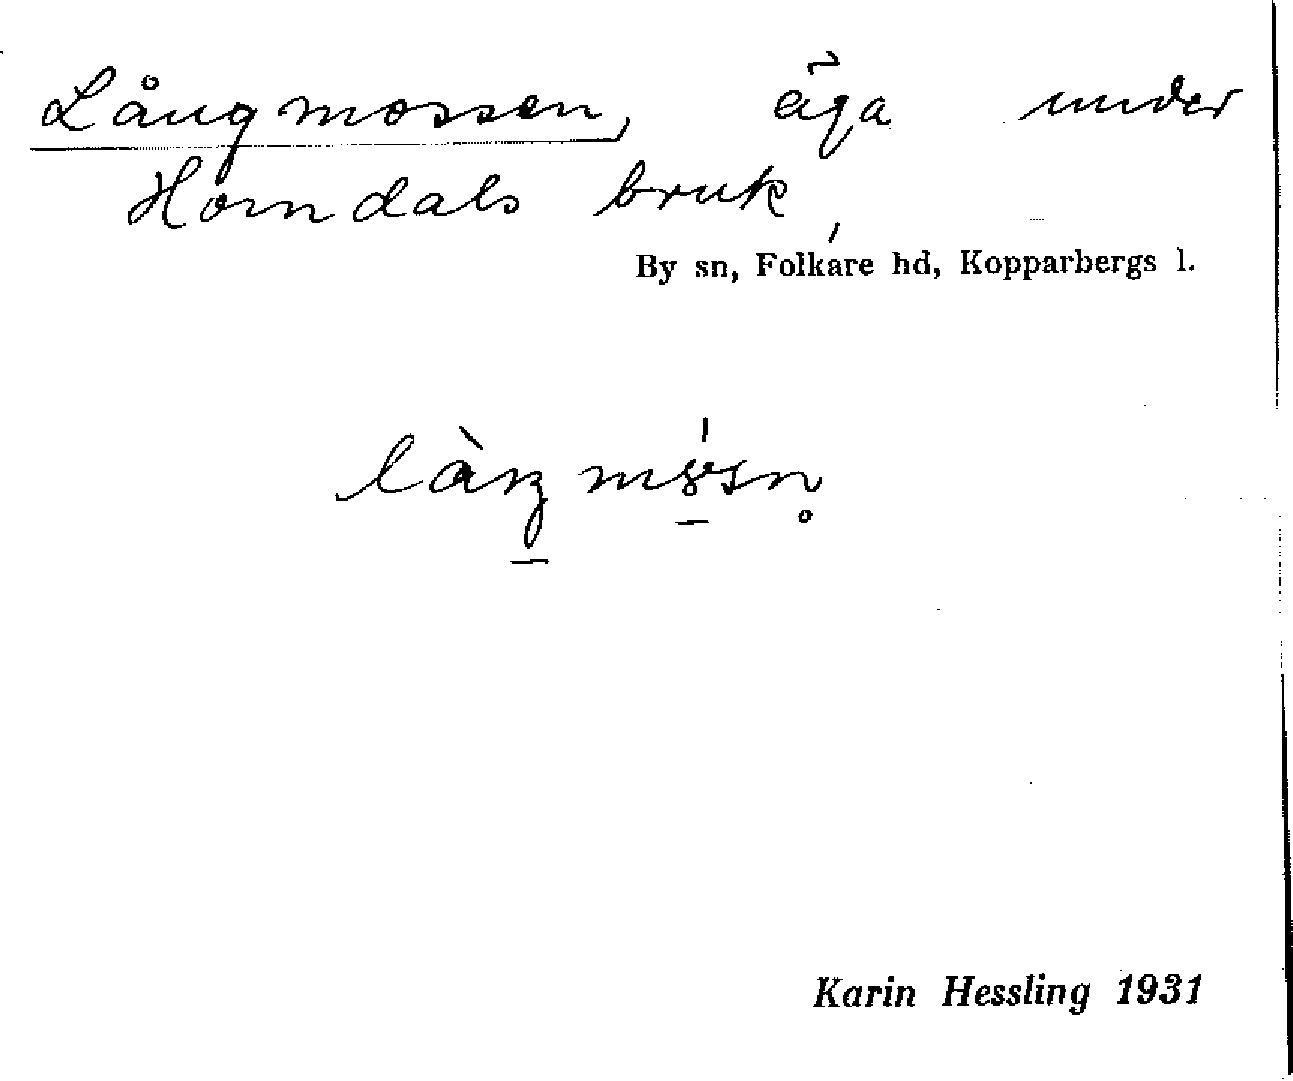 Långmossen, äga under
Horndals bruk,
By sn, Folkare hd, Kopparbergs l.
Karin Hessling 1931